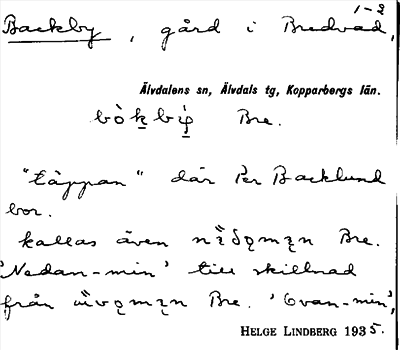 1-2
Backby, gård i Bredvad,
Älvdalens sn, Älvdals tg, Kopparbergs län.
Bre.
"täppan" där Per Backlund
bor.
kallas även Bre.
'Nedan-min' till skillnad
från Bre. 'Ovan-min',
HELGE LINDBERG 1935.